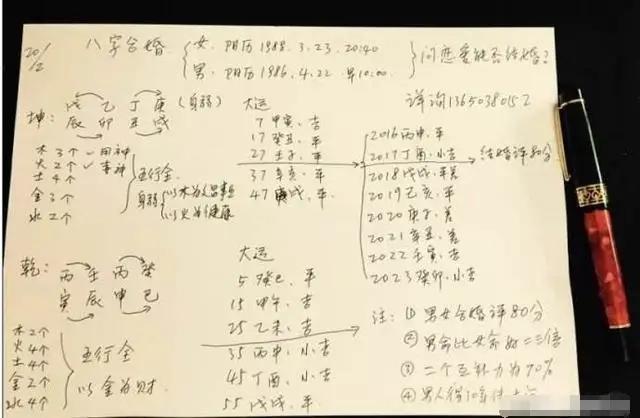 20/2
八字合婚
女:阳历1988.3.23,20:40
男:阳历1986.4.22.早10:00.
问恋爱能否结婚?
详询13650380152
坤:
戊乙丁庚
(身弱)
辰卯丑戌
木3个✓用神
火2个✓喜神
土4个
金3个
水2个
五行全
身弱
以火为健康
大运
7甲寅、吉
17癸丑、平
27壬子、平
37辛亥、平
47庚戌、平
2016丙申.平
2017丁酉.小吉
2018戊戌.平
2019己亥.平
2020庚子.差
2021辛丑.差
2022壬寅.吉
2023癸卯.小吉
结婚评80分
乾:
丙壬丙癸
寅辰申巳
木2个
火4个
土4个
金2个
水4个
五行全
以金为财
大运
5癸巳、平
15甲午、吉
25乙未、吉
35丙申、小吉
45丁酉、小吉
55戊戌、平
注:①男女合婚评80分
②男命比女命好二三倍
③二个互补力为70%
④男人得10条件